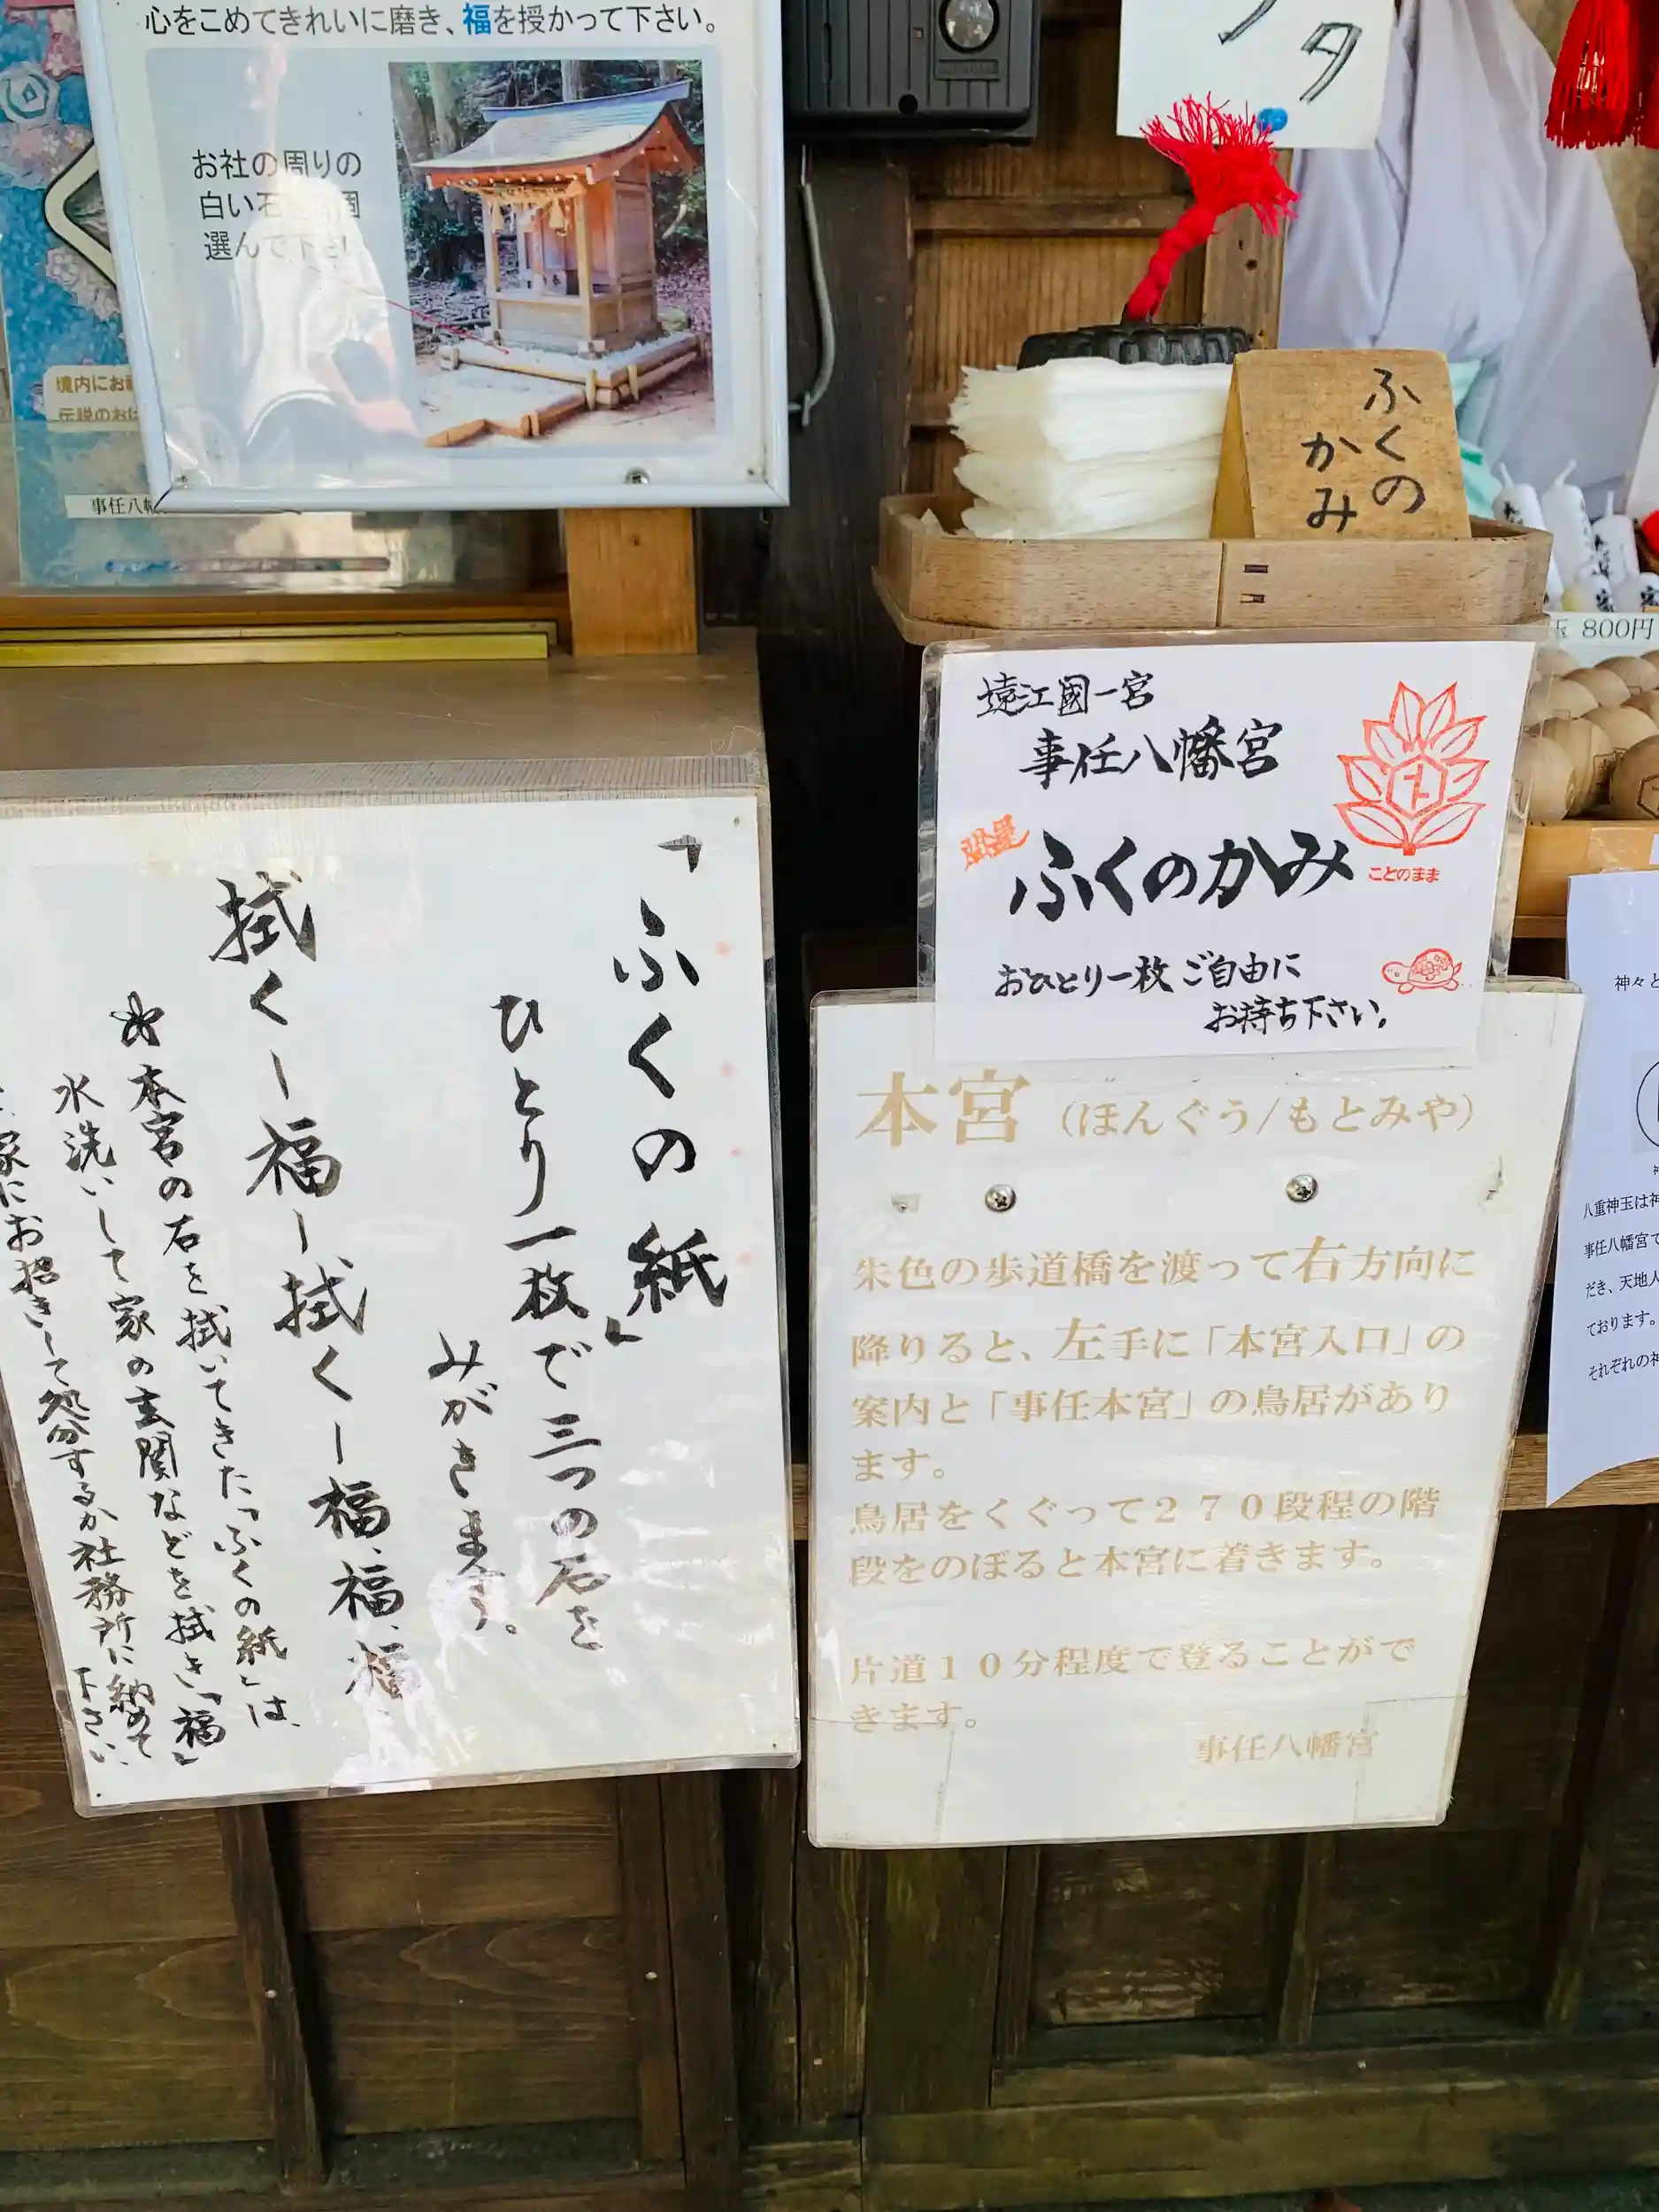 心をこめてきれいに磨き、福を授かって下さい。
お社の周りの
白い石
選んで下さい
境内にお
伝説のお
事任八幡
ふくの
かみ
800円
遠江國一宮
事任八幡宮
開運
ふくのかみ
ことのまま
おひとり一枚ご自由に
お持ち下さい。
「ふくの紙」
ひとり一枚で三つの石を
みがきましょう。
拭くー福ー拭くー福、福、福
本宮の石を拭いてきた「ふくの紙」は、
水洗いして家の玄関などを拭き「福」
家にお招きして処分するか社務所に納めて
下さい、
本宮（ほんぐう/もとみや）
朱色の歩道橋を渡って右方向に
降りると、左手に「本宮入口」の
案内と「事任本宮」の鳥居があり
ます。
鳥居をくぐって２７０段程の階
段をのぼると本宮に着きます。
片道１０分程度で登ることがで
きます。
事任八幡宮
神々と
八重神玉は神
事任八幡宮で
だき、天地人
ております。
それぞれの神